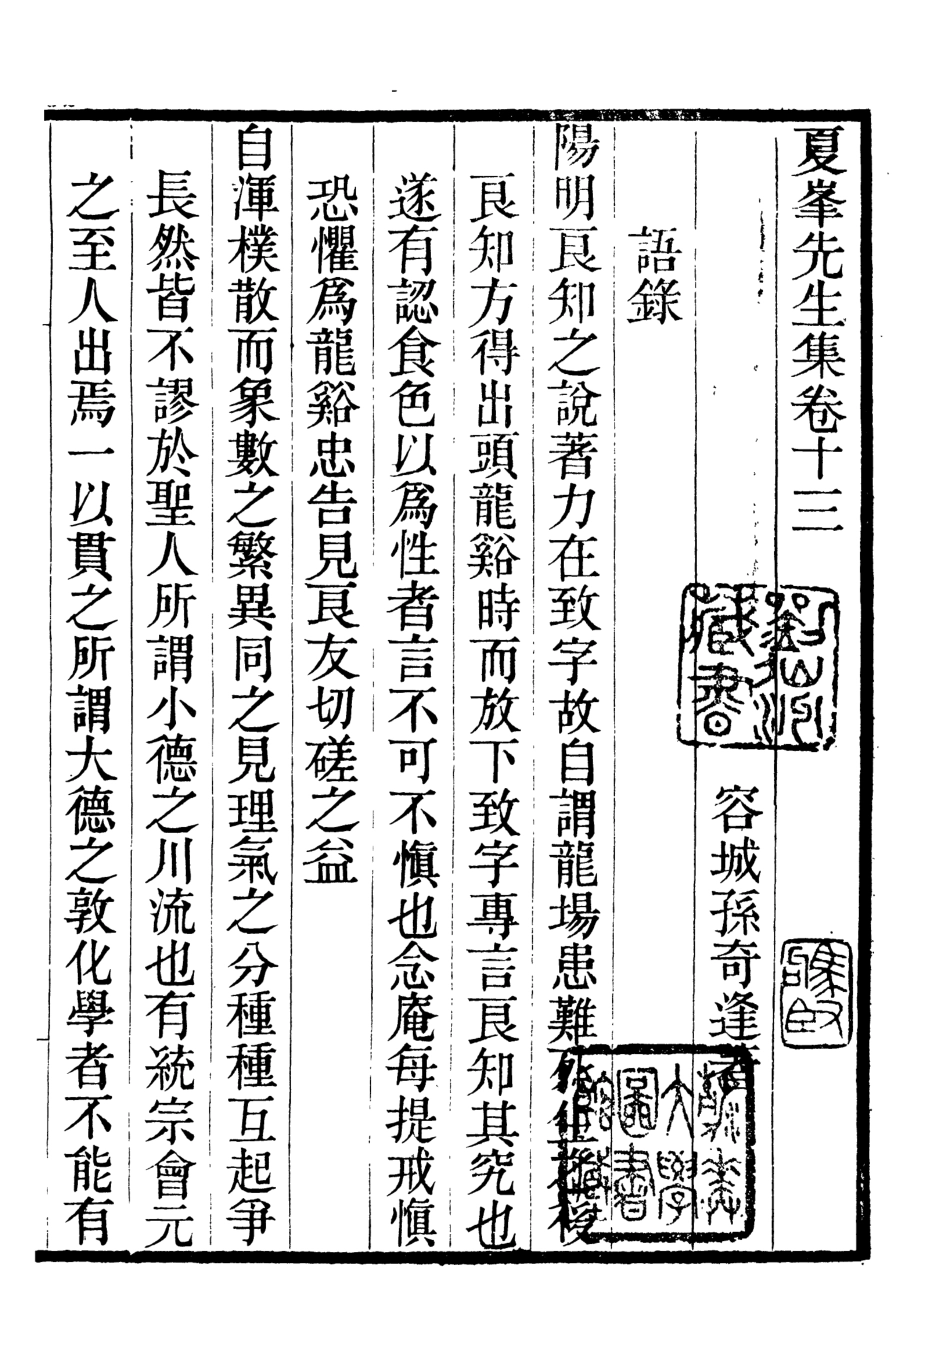 夏峯先生集卷十三
容城孫奇逢著
語錄
陽明良知之說著力在致字故自謂龍場患難死生之後
良知方得出頭龍谿時而放下致字專言良知其究也
遂有認食色以爲性者言不可不愼也念庵每提戒愼
恐懼爲龍谿忠告見良友切磋之益
自渾樸散而象數之繁異同之見理氣之分種種互起爭
長然皆不謬於聖人所謂小德之川流也有統宗會元
之至人出焉一以貫之所謂大德之敦化學者不能有
藏書
大學
圖書